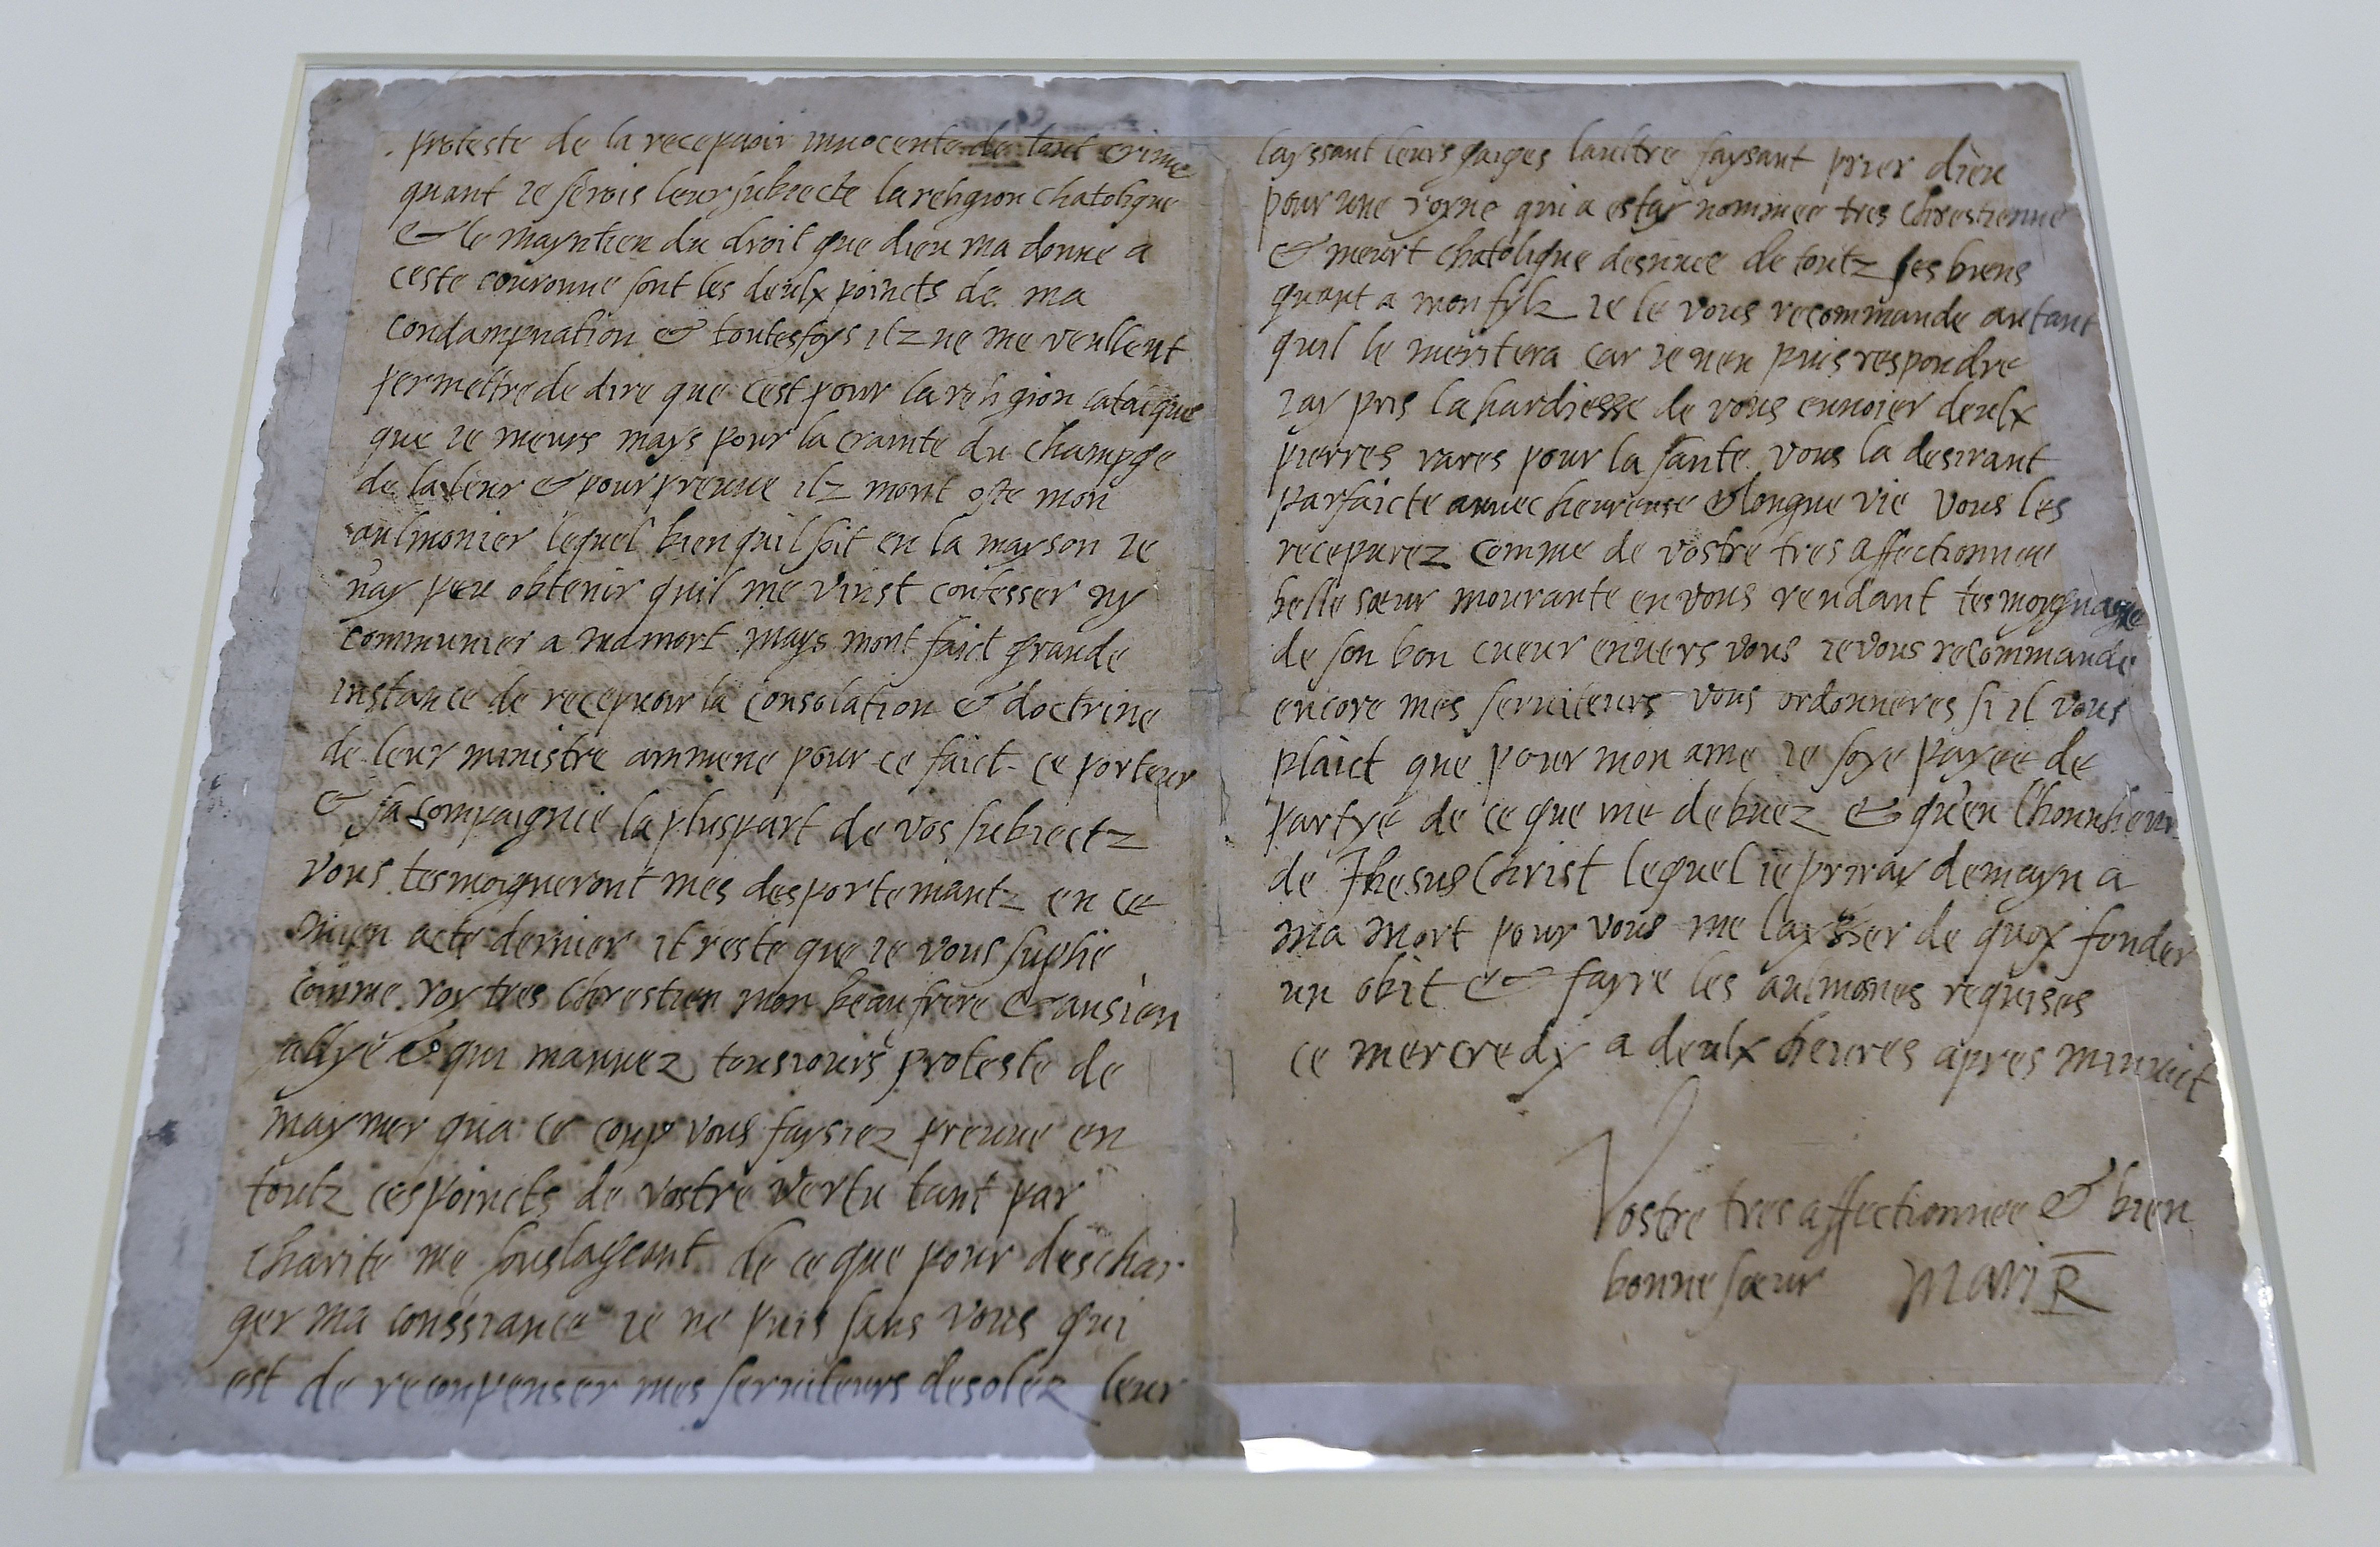 proteste de la recepvoir innocente de tout crime
quant ie serois leur subiecte la religion chatolique
& le mayntien du droit que dieu ma donne a
ceste couronne sont les deulx poincts de ma
condampnation & toutesfoys ilz ne me veullent
permettre de dire que cest pour la religion cataique
que ie meurs mays pour la crainte du champge
de la leur & pour preuue ilz mont oste mon
aulmonier lequel bien quil soit en la mayson ie
nay peu obtenir quil me vinst confesser ny
communier a ma mort mays mont faict grande
instance de recepuoir la consolation & doctrine
de leur ministre ammene pour ce faict ce porteur
& sa compaignie la pluspart de vos subiectz
vous tesmoigneront mes desportemantz en ce
mien acte dernier il reste que ie vous suplie
comme roy tres chrestien mon beau frere & ansien
allye & qui mauuez tousiours proteste de
maymer qua ce coup vous faysiez preuue en
toutz ces poincts de vostre vertu tant par
charite me soulageant de ce que pour deschar
ger ma conssiance ie ne puis sans vous qui
est de reconpenser mes seruiteurs desolez leur
layssant leurs gaiges laultre faysant prier dieu
pour une royne qui a estay nommee tres chrestienne
& meurt chatolique desnuee de toutz ses biens
quant a mon fylz ie le vous recommande autant
quil le meritera car ie nen puis respondre
iay pris la hardiesse de vous ennoier deulx
pierres rares pour la sante vous la desirant
parfaicte auuec heureuse & longue vie vous les
recepurez comme de vostre tres affectionnee
belle sœur mourante en vous rendant tesmoygnage
de son bon cueur enuers vous ie vous recommande
encore mes seruiteurs vous ordonneres si il vous
plaict que pour mon ame ie soye payee de
partye de ce que me debuez & qu'en lhonnheur
de Jhesus Christ lequel ie priray demayn a
ma mort pour vous me laysser de quoy fonder
un obit & fayre les aulmones requises
ce mercredy a deulx heures apres minuit
Vostre tres affectionnee & bien
bonne sœur Mari R